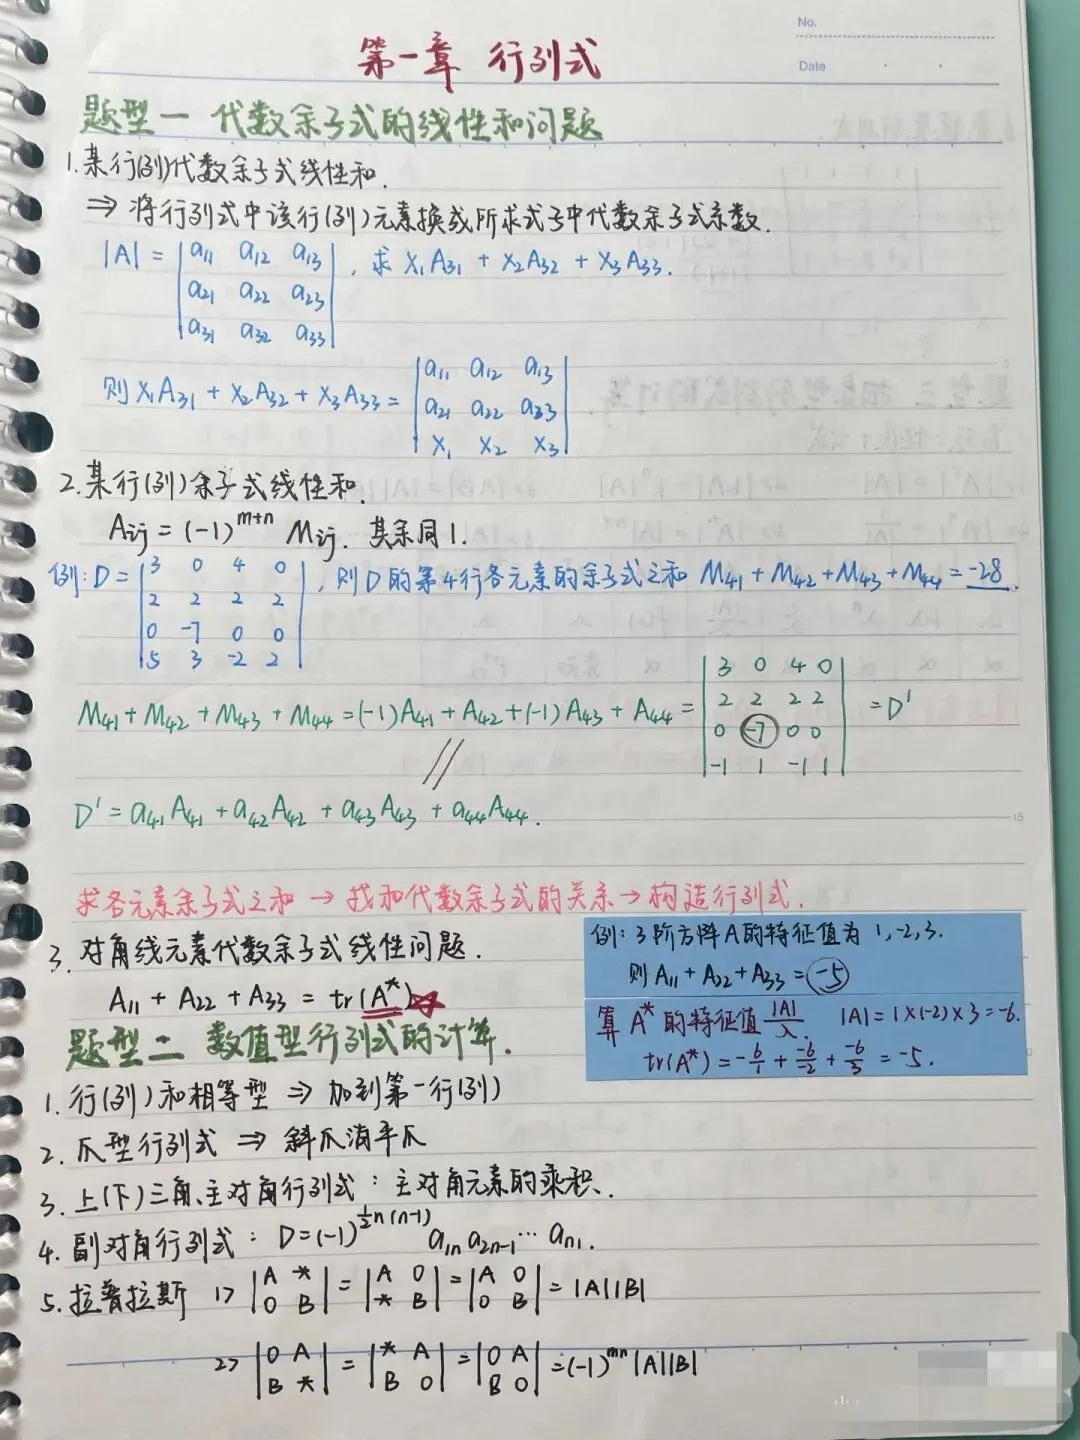 No.
Date
第一章 行列式
题型一 代数余子式的线性和问题
1.某行(列)代数余子式线性和.
⇒ 将行列式中该行(列)元素换成所求式子中代数余子式系数.
|A| = | a11 a12 a13 | , 求 x1A31 + x2A32 + x3A33.
| a21 a22 a23 |
| a31 a32 a33 |
则 x1A31 + x2A32 + x3A33 = | a11 a12 a13 |
| a21 a22 a23 |
| x1 x2 x3 |
2.某行(列)余子式线性和.
Aij = (-1)^{m+n} Mij. 其余同1.
例: D = | 3 0 4 0 | , 则D的第4行各元素的余子式之和 M41 + M42 + M43 + M44 = -28.
| 2 2 2 2 |
| 0 -7 0 0 |
| 5 3 -2 2 |
M41 + M42 + M43 + M44 = (-1)A41 + A42 + (-1)A43 + A44 = | 3 0 4 0 | = D'
| 2 2 2 2 |
| 0 -7 0 0 |
| -1 1 -1 1 |
D' = a41A41 + a42A42 + a43A43 + a44A44.
求各元素余子式之和 → 找和代数余子式的关系 → 构造行列式.
3. 对角线元素代数余子式线性问题.
A11 + A22 + A33 = tr(A*)☆
例: 3阶方阵A的特征值为 1,-2,3.
则 A11 + A22 + A33 = -5
算 A* 的特征值 |A|/λ. |A| = 1×(-2)×3 = -6.
tr(A*) = -6/1 + -6/-2 + -6/3 = -5.
题型二 数值型行列式的计算.
1. 行(列)和相等型 ⇒ 加到第一行(列)
2. 爪型行列式 ⇒ 斜爪消平爪
3. 上(下)三角、主对角行列式: 主对角元素的乘积.
4. 副对角行列式: D = (-1)^{½n(n-1)} a1n a2n-1 … an1.
5. 拉普拉斯 1> | A * ; 0 B | = | A 0 ; * B | = | A 0 ; 0 B | = |A||B|
2> | 0 A ; B * | = | * A ; B 0 | = | 0 A ; B 0 | = (-1)^{mn} |A||B|